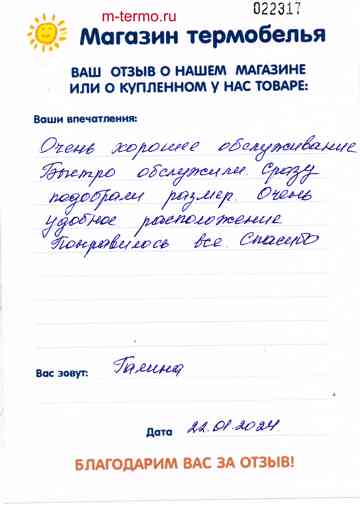 m-termo.ru
022317
Магазин термобелья
ВАШ ОТЗЫВ О НАШЕМ МАГАЗИНЕ
ИЛИ О КУПЛЕННОМ У НАС ТОВАРЕ:
Ваши впечатления:
Очень хорошее обслуживание
Быстро обслужили. Сразу
подобрали размер. Очень
удобное расположение
Понравилось все. Спасибо
Вас зовут: Галина
Дата 22.01.2024
БЛАГОДАРИМ ВАС ЗА ОТЗЫВ!